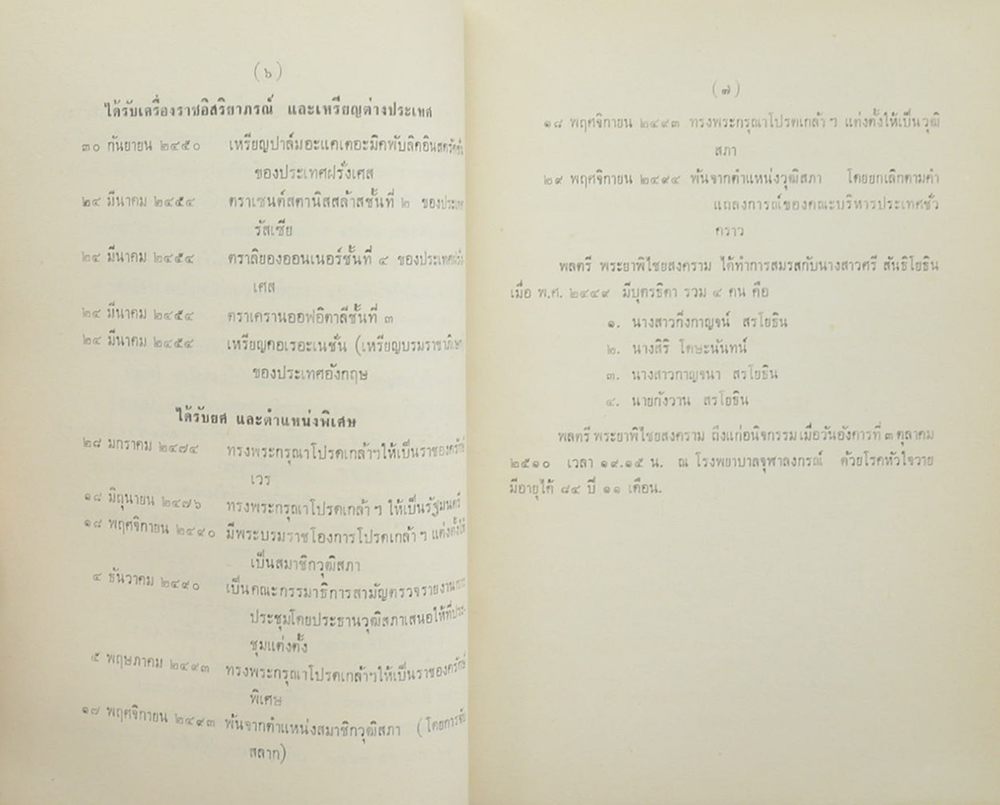 (๖)
ได้รับเครื่องราชอิสริยาภรณ์ และเหรียญต่างประเทศ
๓๐ กันยายน ๒๔๕๐ เหรียญปาล์มอะแคเดอะมิคพับลิคอินสตรัคชั่น
ของประเทศฝรั่งเศส
๒๔ มีนาคม ๒๔๕๔ ตราเซนต์สตานิสสล้าสชั้นที่ ๒ ของประเทศ
รัสเซีย
๒๔ มีนาคม ๒๔๕๔ ตราลิยองออนเนอร์ชั้นที่ ๔ ของประเทศฝรั่ง
เศส
๒๔ มีนาคม ๒๔๕๔ ตราเครานออฟอิตาลีชั้นที่ ๓
๒๔ มีนาคม ๒๔๕๔ เหรียญคอเรอะเนชั่น (เหรียญบรมราชาภิเษก)
ของประเทศอังกฤษ
ได้รับยศ และตำแหน่งพิเศษ
๒๘ มกราคม ๒๔๗๔ ทรงพระกรุณาโปรดเกล้าฯให้เป็นราชองครักษ์
เวร
๑๘ มิถุนายน ๒๔๗๖ ทรงพระกรุณาโปรดเกล้า ฯ ให้เป็นรัฐมนตรี
๑๘ พฤศจิกายน ๒๔๙๐ มีพระบรมราชโองการโปรดเกล้า ฯ แต่งตั้งให้
เป็นสมาชิกวุฒิสภา
๔ ธันวาคม ๒๔๙๐ เป็นคณะกรรมาธิการสามัญตรวจรายงานการ
ประชุมโดยประธานวุฒิสภาเสนอให้ที่ประ
ชุมแต่งตั้ง
๕ พฤษภาคม ๒๔๙๓ ทรงพระกรุณาโปรดเกล้าฯให้เป็นราชองครักษ์
พิเศษ
๑๗ พฤศจิกายน ๒๔๙๓ พ้นจากตำแหน่งสมาชิกวุฒิสภา (โดยการจับ
สลาก)
(๗)
๑๘ พฤศจิกายน ๒๔๙๓ ทรงพระกรุณาโปรดเกล้า ฯ แต่งตั้งให้เป็นวุฒิ
สภา
๒๙ พฤศจิกายน ๒๔๙๔ พ้นจากตำแหน่งวุฒิสภา โดยยกเลิกตามคำ
แถลงการณ์ของคณะบริหารประเทศชั่ว
คราว
พลตรี พระยาพิไชยสงคราม ได้ทำการสมรสกับนางสาวศรี สันธิโยธิน
เมื่อ พ.ศ. ๒๔๔๙ มีบุตรธิดา รวม ๔ คน คือ
๑. นางสาวกิ่งกาญจน์ สรโยธิน
๒. นางสิริ โตษะนันทน์
๓. นางสาวกาญจนา สรโยธิน
๔. นายกังวาน สรโยธิน
พลตรี พระยาพิไชยสงคราม ถึงแก่อนิจกรรมเมื่อวันอังคารที่ ๓ ตุลาคม
๒๕๑๐ เวลา ๑๙.๑๕ น. ณ โรงพยาบาลจุฬาลงกรณ์ ด้วยโรคหัวใจวาย
มีอายุได้ ๘๔ ปี ๑๑ เดือน.